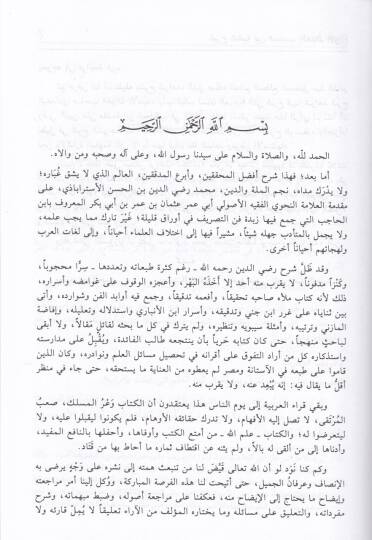 بِسْمِ اللَّهِ الرَّحْمَٰنِ الرَّحِيمِ
الحمد لله، والصلاة والسلام على سيدنا رسول الله، وعلى آله وصحبه ومن والاه.
أما بعد؛ فهذا شرح أفضل المحققين، وأبرع المدققين، العالم الذي لا يشق غُبَاره؛
ولا يدْرَك مداه، نجم الملة والدين، محمد رضي الدين بن الحسن الأستراباذي، على
مقدمة العلامة النحوي الفقيه الأصولي أبي عمر عثمان بن عمر بن أبي بكر المعروف بابن
الحاجب التي جمع فيها زبدة فن التصريف في أوراق قليلة؛ غَيْرَ تارك مما يجب علمه،
ولا يجمل بالمتأدب جهله شيئاً، مشيراً فيها إلى اختلاف العلماء أحياناً، وإلى لغات العرب
ولهجاتهم أحياناً أخرى.
وقد ظَلَّ شرح رضي الدين رحمه الله ـ رغم كثرة طبعاته وتعددها ـ سِرًّا محجوباً،
وكَنْزاً مدفوناً، لا يقرب منه أحد إلا أَخَذَهُ البَهْر، وأعجزه الوقوف على غوامضه وأسراره،
ذلك لأنه كتاب ملأه صاحبه تحقيقاً، وأفعمه تدقيقاً، وجمع فيه أوابد الفن وشوارده، وأتى
بين ثناياه على غرر ابن جني وتدقيقه، وأسرار ابن الأنباري واستدلاله وتعليله، وإفاضة
المازني وترتيبه، وأمثلة سيبويه وتنظيره، ولم يترك في كل ما بحثه لقائل مَقَالاً، ولا أبقى
لباحثٍ منهجاً، حتى كان كتابه حَرِياً بأن ينتجعه طالب الفائدة، ويُقْبِلُ على مدارسته
واستذكاره كل من أراد التفوق على أقرانه في تحصيل مسائل العلم ونوادره، وكان الذين
قاموا على طبعه في الآستانة ومصر لم يعطوه من العناية ما يستحقه، حتى جاء في منظر
أقلُّ ما يقال فيه: إنه يُبْعِد عنه، ولا يقرب منه.
وبقي قراء العربية إلى يوم الناس هذا يعتقدون أن الكتاب وَعْرُ المسلك، صعبُ
المُرْتَقَى، لا تصل إليه الأفهام، ولا تدرك حقائقه الأوهام، فلم يكونوا ليقبلوا عليه، ولا
ليتعرضوا له؛ والكتاب ـ علم الله ـ من أمتع الكتب وأوفاها، وأحفلها بالنافع المفيد،
وأدناها إلى من ألقى له بالاً، ولم يثنه عن اقتطاف ثماره ما أحاط بها من قَتَاد.
وكم كنا نَود لو أن الله تعالى قَيَّضَ لنا من تنبعث همته إلى نشره على وَجْهٍ يرضى به
الإنصاف وعرفانُ الجميل، حتى أتيحت لنا هذه الفرصة المباركة، ووُكل إلينا أمر مراجعته
وإيضاح ما يحتاج إلى الإيضاح منه، فعكفنا على مراجعة أصوله، وضبط مبهماته، وشرح
مفرداته، والتعليق على مسائله وما يختاره المؤلف من الآراء تعليقاً لا يُمِلُّ قارئه ولا